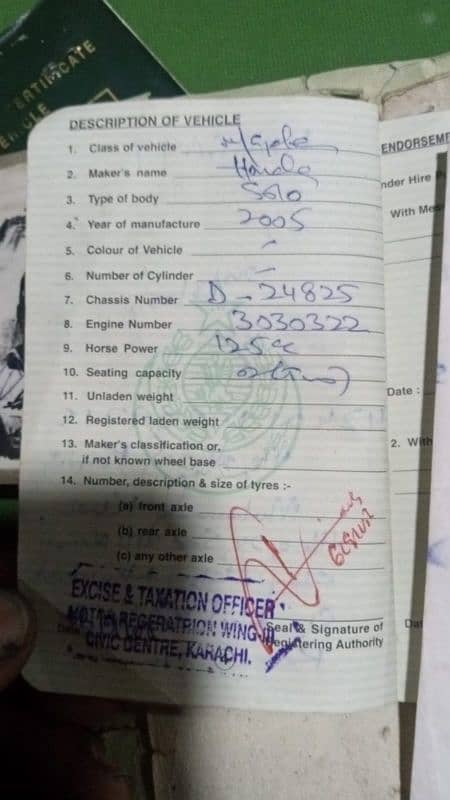 ERTIFICATE
DESCRIPTION OF VEHICLE
1. Class of vehicle M/Cycle
2. Maker's name Honda
3. Type of body Solo
4. Year of manufacture 2005
5. Colour of Vehicle -
6. Number of Cylinder -
7. Chassis Number D-24825
8. Engine Number 3030322
9. Horse Power 125cc
10. Seating capacity 02 (Two)
11. Unladen weight
12. Registered laden weight
13. Maker's classification or,
if not known wheel base
14. Number, description & size of tyres :-
(a) front axle
(b) rear axle
(c) any other axle
EXCISE & TAXATION OFFICER
MOTOR REGERATRION WING-III
CIVIC CENTRE, KARACHI.
Seal & Signature of
Registering Authority
ENDORSEME
nder Hire P
With Mes
Date :
2. With
Dat